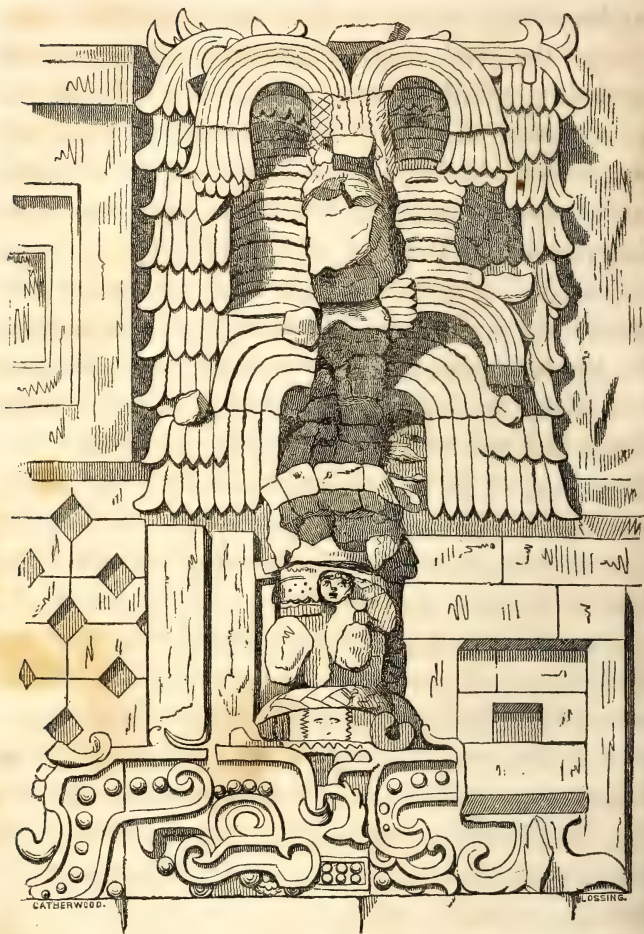 CATHERWOOD.
LOSSING.